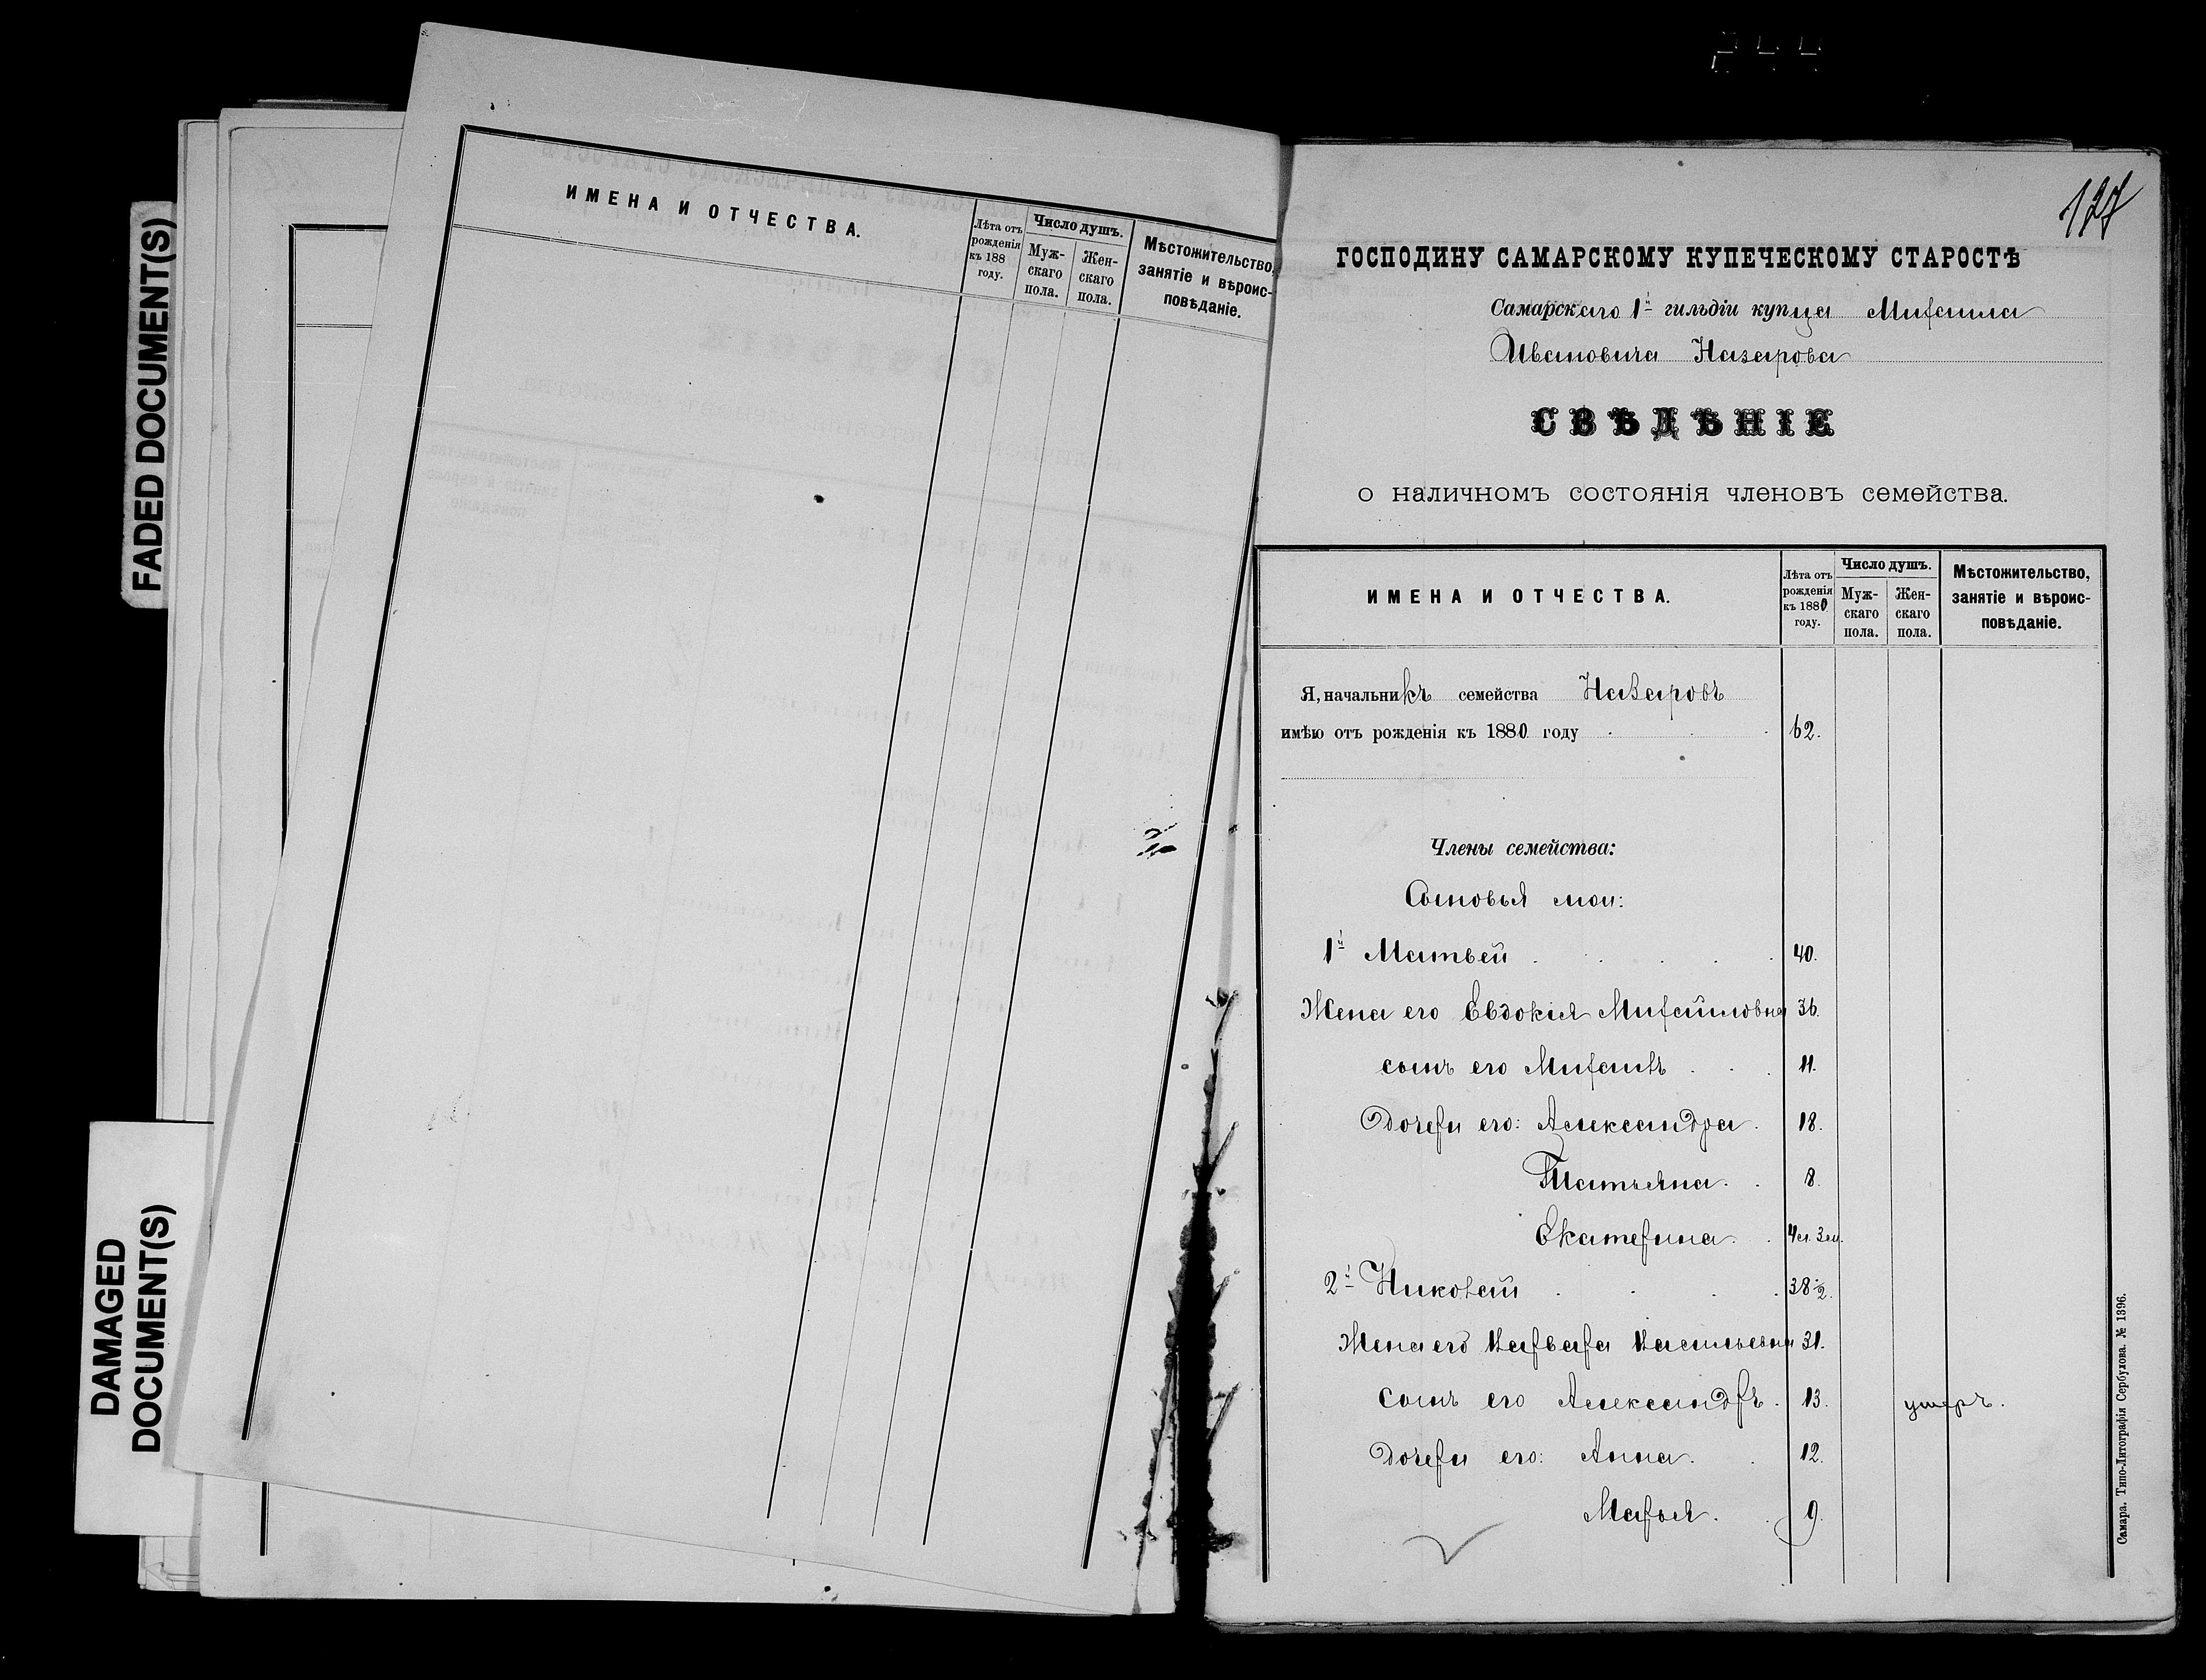 FADED DOCUMENT(S)
DAMAGED
DOCUMENT(S)
ИМЕНА И ОТЧЕСТВА.
Лѣта отъ
рожденія
къ 188
году.
Число душъ.
Муж-
скаго
пола.
Жен-
скаго
пола.
Мѣстожительство,
занятіе и вѣроис-
повѣданіе.
127
ГОСПОДИНУ САМАРСКОМУ КУПЕЧЕСКОМУ СТАРОСТѢ
Самарскаго 1й гильдіи купца Михаила
Ивановича Назарова
СВѢДѢНІЕ
о наличномъ состоянія членовъ семейства.
ИМЕНА И ОТЧЕСТВА.
Лѣта отъ
рожденія
къ 1880
году.
Число душъ.
Муж-
скаго
пола.
Жен-
скаго
пола.
Мѣстожительство,
занятіе и вѣроис-
повѣданіе.
Я, начальникъ семейства Назаровъ
имѣю отъ рожденія къ 1880 году 62.
Члены семейства:
Сыновья мои:
1й Матвей 40.
Жена его Евдокія Михайловна 36.
сынъ его Михаилъ 11.
Дочери его: Александра 18.
Татьяна 8.
Екатерина 4 л. 3 м.
2й Николай 38 1/2.
Жена его Варвара Васильевна 31.
Сынъ его Александръ 13. умеръ.
Дочери его: Анна. 12.
Марья. 9.
Самара. Типо-Литографія Сербулова. № 1396.